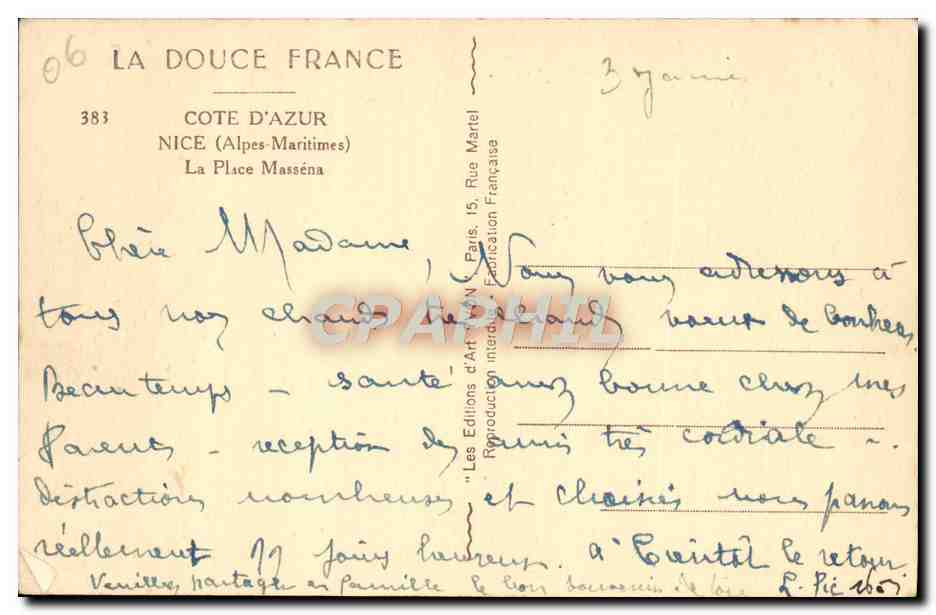 06
LA DOUCE FRANCE
383 COTE D'AZUR
NICE (Alpes-Maritimes)
La Place Masséna
"Les Editions d'Art YVON", Paris, 15, Rue Martel
Reproduction interdite. Fabrication Française
CPARHIL
3
Chère Madame, Nous vous adressons à
tous nos chauds très chauds vœux de bonheur.
Beau temps - santé assez bonne chez mes
Parents - réception des amis très cordiale -
distractions nombreuses et choisies nous passons
réellement 11 jours heureux. à bientôt le retour
Veuillez partager en famille le bon souvenir de
L. Pic